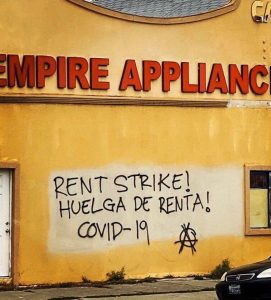 CA
EMPIRE APPLIANC
RENT STRIKE!
HUELGA DE RENTA!
COVID-19 Ⓐ